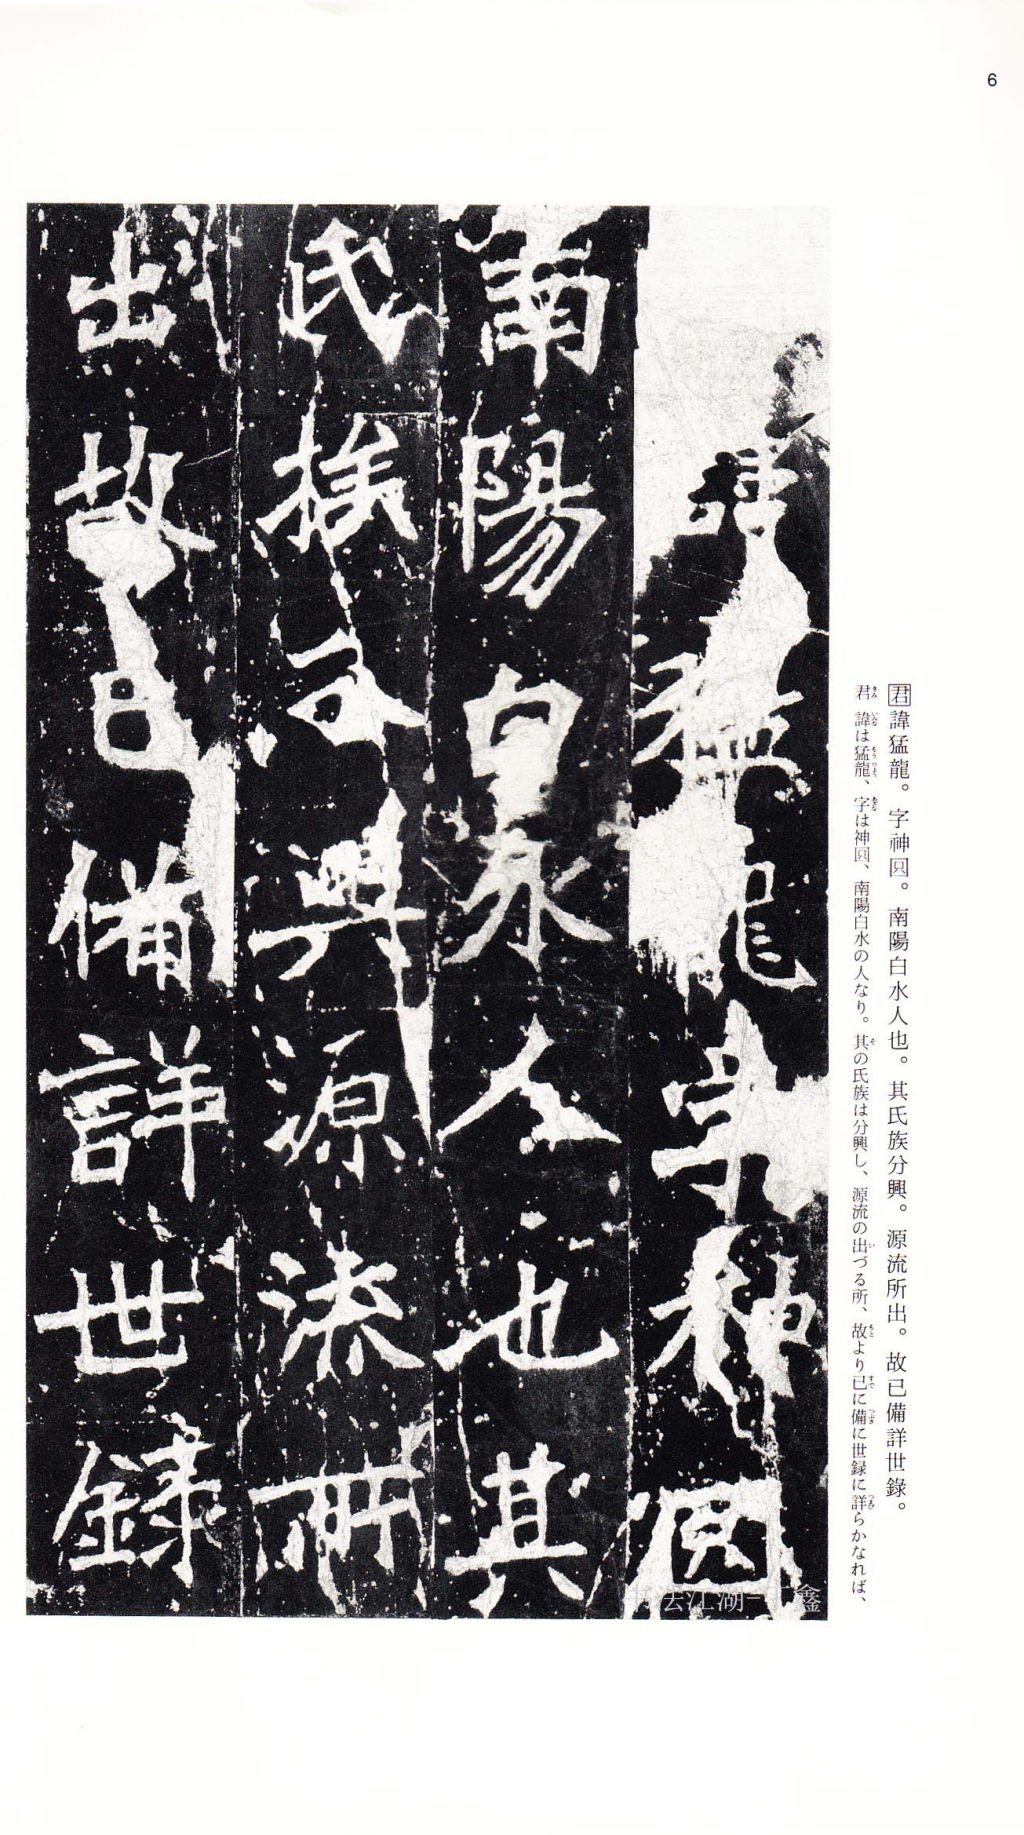 6
君諱猛龍。字神囧。南陽白水人也。其氏族分興。源流所出。故已備詳世錄。
君諱は猛龍、字は神囧、南陽白水の人なり。其の氏族は分興し、源流の出づる所、故より已に備に世録に詳らかなれば、
諱猛龍字神囧
南陽白水人也其
氏族分興源流所
出故已備詳世錄